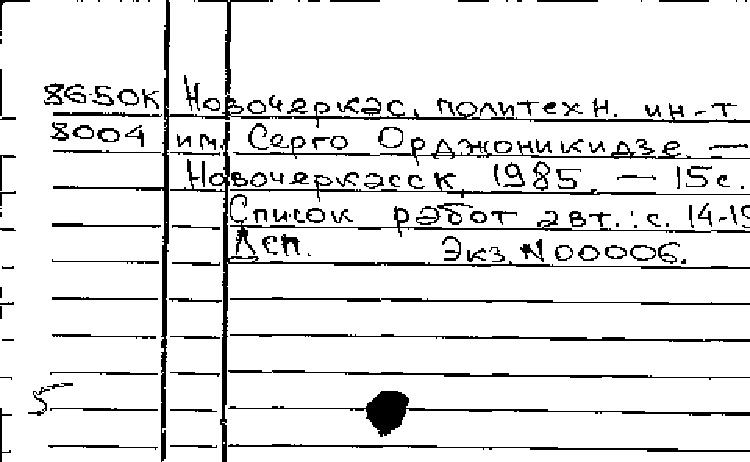 86-50К Новочеркас. политехн. ин-т
8004 им. Серго Орджоникидзе. —
Новочеркасск, 1985. — 15с.
Список работ авт.: с. 14-15
Дсп. Экз. N 00006.
5